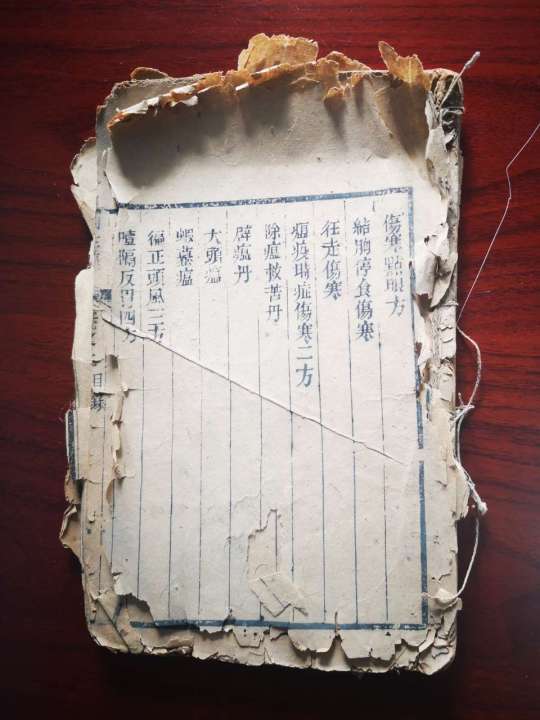 傷寒點眼方
結胸停食傷寒
狂走傷寒
瘟疫時症傷寒二方
除瘟救苦丹
辟瘟丹
大頭瘟
蝦蟇瘟
偏正頭風三方
噎膈反胃四方
目錄